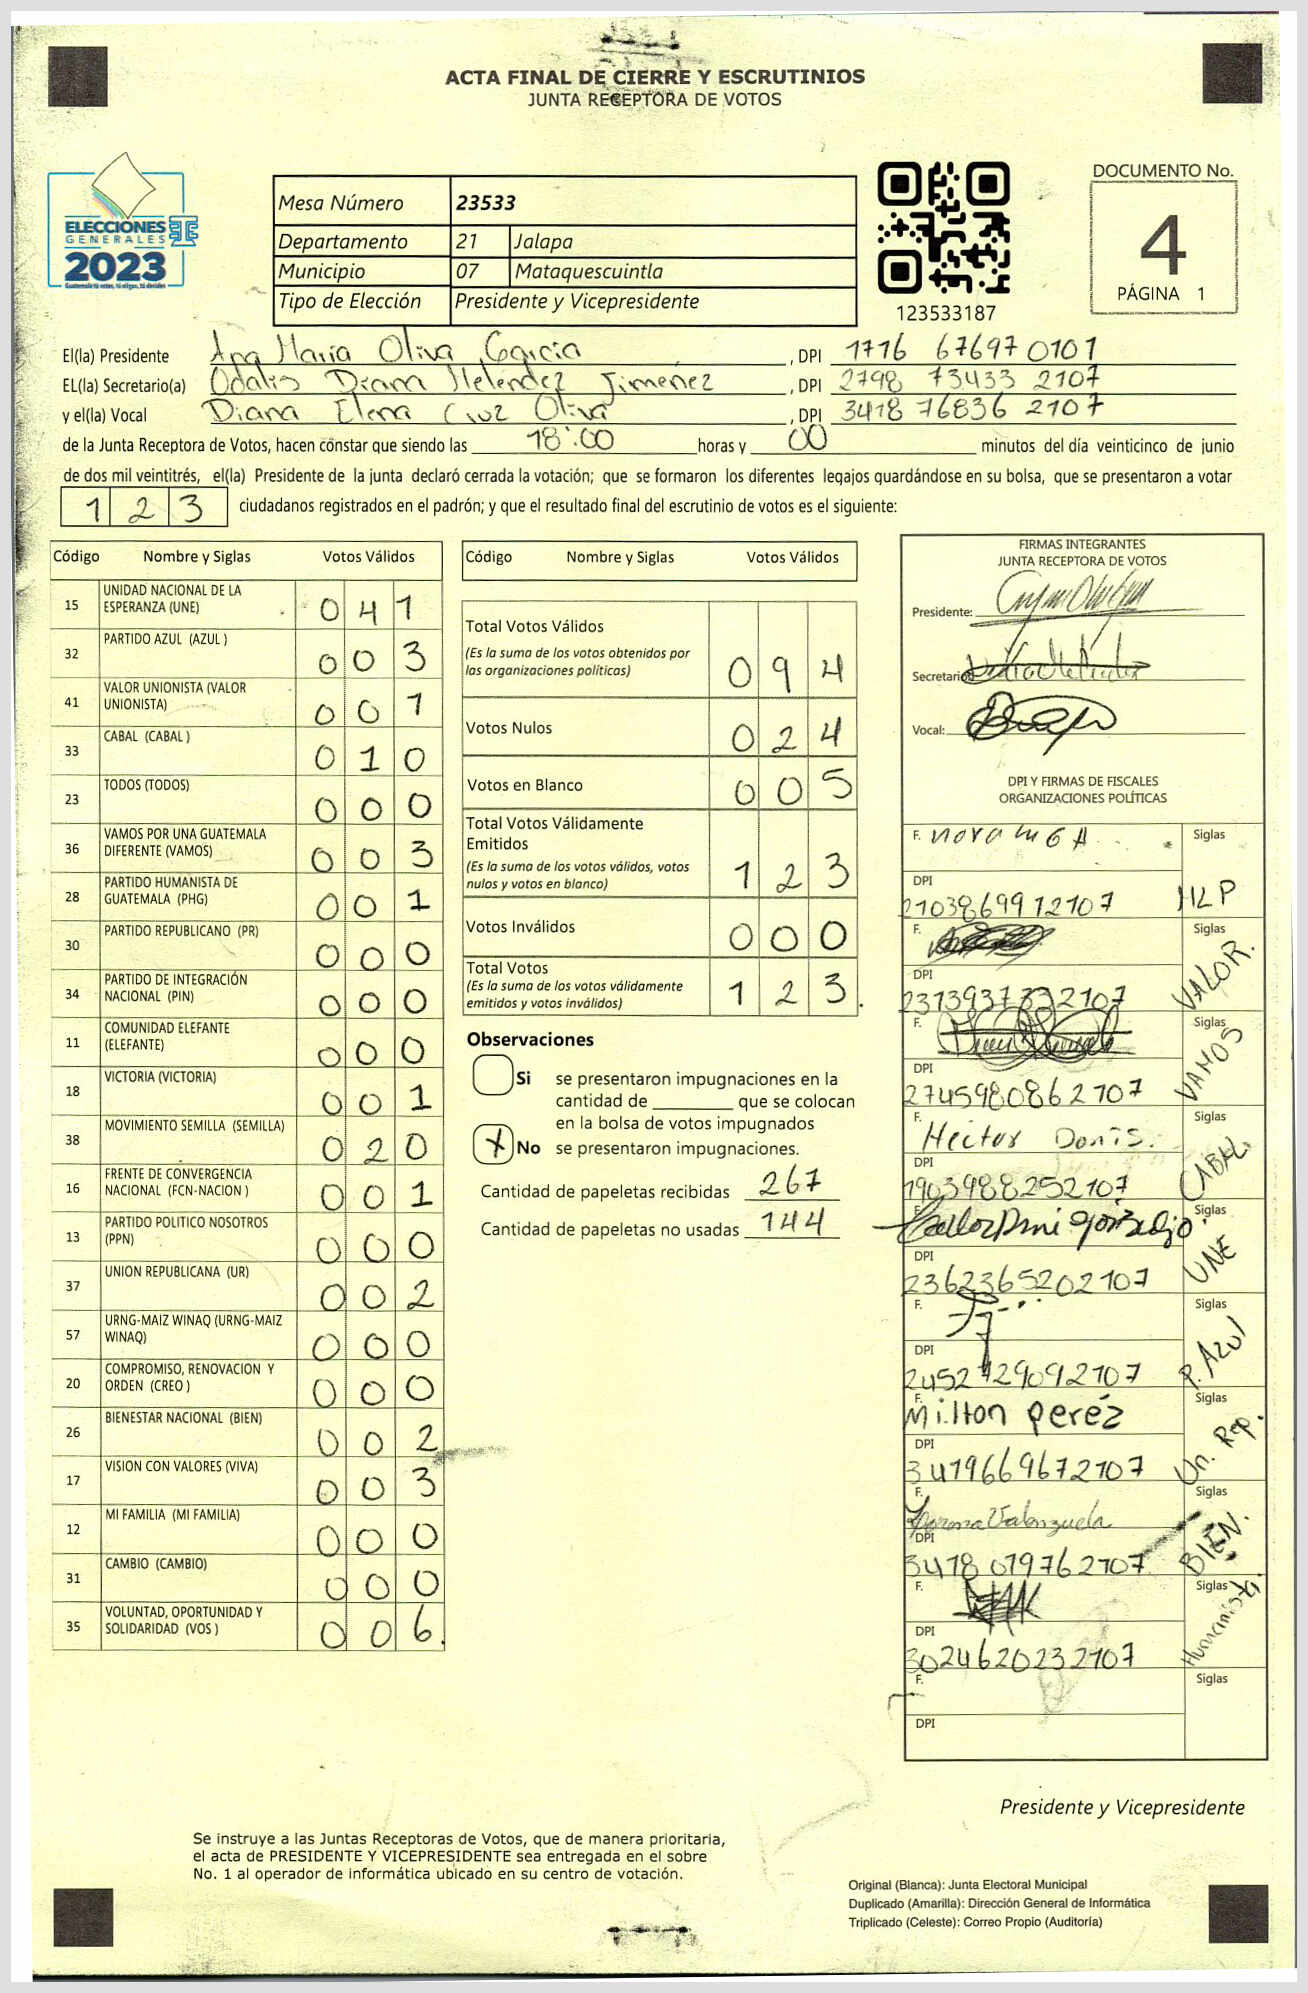 ACTA FINAL DE CIERRE Y ESCRUTINIOS
JUNTA RECEPTORA DE VOTOS
ELECCIONES
GENERALES
2023
Mesa Número 23533
Departamento 21 Jalapa
Municipio 07 Mataquescuintla
Tipo de Elección Presidente y Vicepresidente
123533187
DOCUMENTO No.
4
PÁGINA 1
El(la) Presidente Ana María Oliva García , DPI 1776 67697 0101
EL(la) Secretario(a) Odalis Diana Meléndez Jimenez , DPI 2798 73433 2107
y el(la) Vocal Diana Elena Cruz Oliva , DPI 3418 76836 2107
de la Junta Receptora de Votos, hacen constar que siendo las 18:00 horas y 00 minutos del día veinticinco de junio
de dos mil veintitrés, el(la) Presidente de la junta declaró cerrada la votación; que se formaron los diferentes legajos guardándose en su bolsa, que se presentaron a votar
1 2 3 ciudadanos registrados en el padrón; y que el resultado final del escrutinio de votos es el siguiente:
Código Nombre y Siglas Votos Válidos
15 UNIDAD NACIONAL DE LA ESPERANZA (UNE) 0 4 1
32 PARTIDO AZUL (AZUL ) 0 0 3
41 VALOR UNIONISTA (VALOR UNIONISTA) 0 0 1
33 CABAL (CABAL ) 0 1 0
23 TODOS (TODOS) 0 0 0
36 VAMOS POR UNA GUATEMALA DIFERENTE (VAMOS) 0 0 3
28 PARTIDO HUMANISTA DE GUATEMALA (PHG) 0 0 1
30 PARTIDO REPUBLICANO (PR) 0 0 0
34 PARTIDO DE INTEGRACIÓN NACIONAL (PIN) 0 0 0
11 COMUNIDAD ELEFANTE (ELEFANTE) 0 0 0
18 VICTORIA (VICTORIA) 0 0 1
38 MOVIMIENTO SEMILLA (SEMILLA) 0 2 0
16 FRENTE DE CONVERGENCIA NACIONAL (FCN-NACION ) 0 0 1
13 PARTIDO POLITICO NOSOTROS (PPN) 0 0 0
37 UNION REPUBLICANA (UR) 0 0 2
57 URNG-MAIZ WINAQ (URNG-MAIZ WINAQ) 0 0 0
20 COMPROMISO, RENOVACION Y ORDEN (CREO ) 0 0 0
26 BIENESTAR NACIONAL (BIEN) 0 0 2
17 VISION CON VALORES (VIVA) 0 0 3
12 MI FAMILIA (MI FAMILIA) 0 0 0
31 CAMBIO (CAMBIO) 0 0 0
35 VOLUNTAD, OPORTUNIDAD Y SOLIDARIDAD (VOS ) 0 0 6.
Código Nombre y Siglas Votos Válidos
Total Votos Válidos
(Es la suma de los votos obtenidos por las organizaciones políticas) 0 9 4
Votos Nulos 0 2 4
Votos en Blanco 0 0 5
Total Votos Válidamente Emitidos
(Es la suma de los votos válidos, votos nulos y votos en blanco) 1 2 3
Votos Inválidos 0 0 0
Total Votos
(Es la suma de los votos válidamente emitidos y votos inválidos) 1 2 3.
Observaciones
Si se presentaron impugnaciones en la
cantidad de ________ que se colocan
en la bolsa de votos impugnados
X No se presentaron impugnaciones.
Cantidad de papeletas recibidas 267
Cantidad de papeletas no usadas 144
FIRMAS INTEGRANTES
JUNTA RECEPTORA DE VOTOS
Presidente:
Secretario
Vocal:
DPI Y FIRMAS DE FISCALES
ORGANIZACIONES POLÍTICAS
F. Siglas
DPI
2103869912107 MLP
F. Siglas
DPI
2313937332107 VALOR.
F. Siglas
DPI
2745980862107 VAMOS
F. Hector Donis. Siglas
DPI
1903988252107 CABAL
F. Siglas
DPI
2362365202107 UNE
F. Siglas
DPI
2452729092107 P. AZUl
F. Milton perez Siglas
DPI
3419669672107 Un. Rep.
F. Valenzuela Siglas
DPI
3418019762107 BIEN.
F. Siglas
DPI
3024620232107 Humanista.
F. Siglas
DPI
Presidente y Vicepresidente
Se instruye a las Juntas Receptoras de Votos, que de manera prioritaria,
el acta de PRESIDENTE Y VICEPRESIDENTE sea entregada en el sobre
No. 1 al operador de informática ubicado en su centro de votación.
Original (Blanca): Junta Electoral Municipal
Duplicado (Amarilla): Dirección General de Informática
Triplicado (Celeste): Correo Propio (Auditoría)